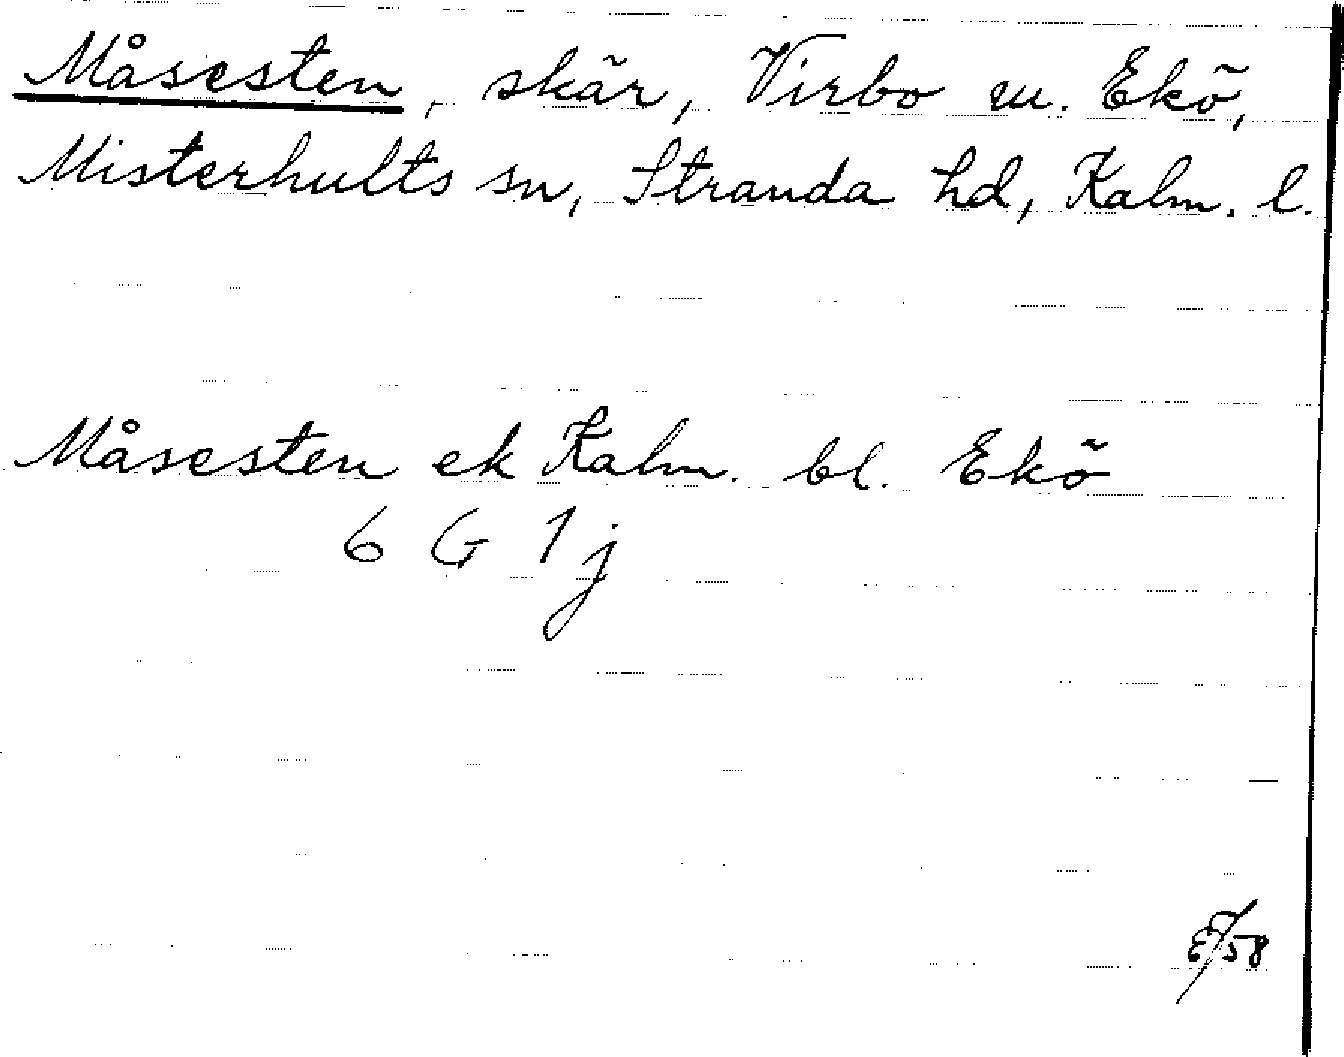 Måsesten, skär, Virbo m. Ekö,
Misterhults sn, Stranda hd, Kalm. l.
Måsesten ek Kalm. bl. Ekö
6 G 1 j